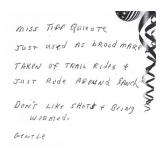 MISS TIFF QUIXOTE
JUST USED AS BROOD MARE
TAKEN OF TRAIL RIDES &
JUST RODE AROUND RANCH
DON'T LIKE SHOTS & BEING
WORMED.
GENTLE